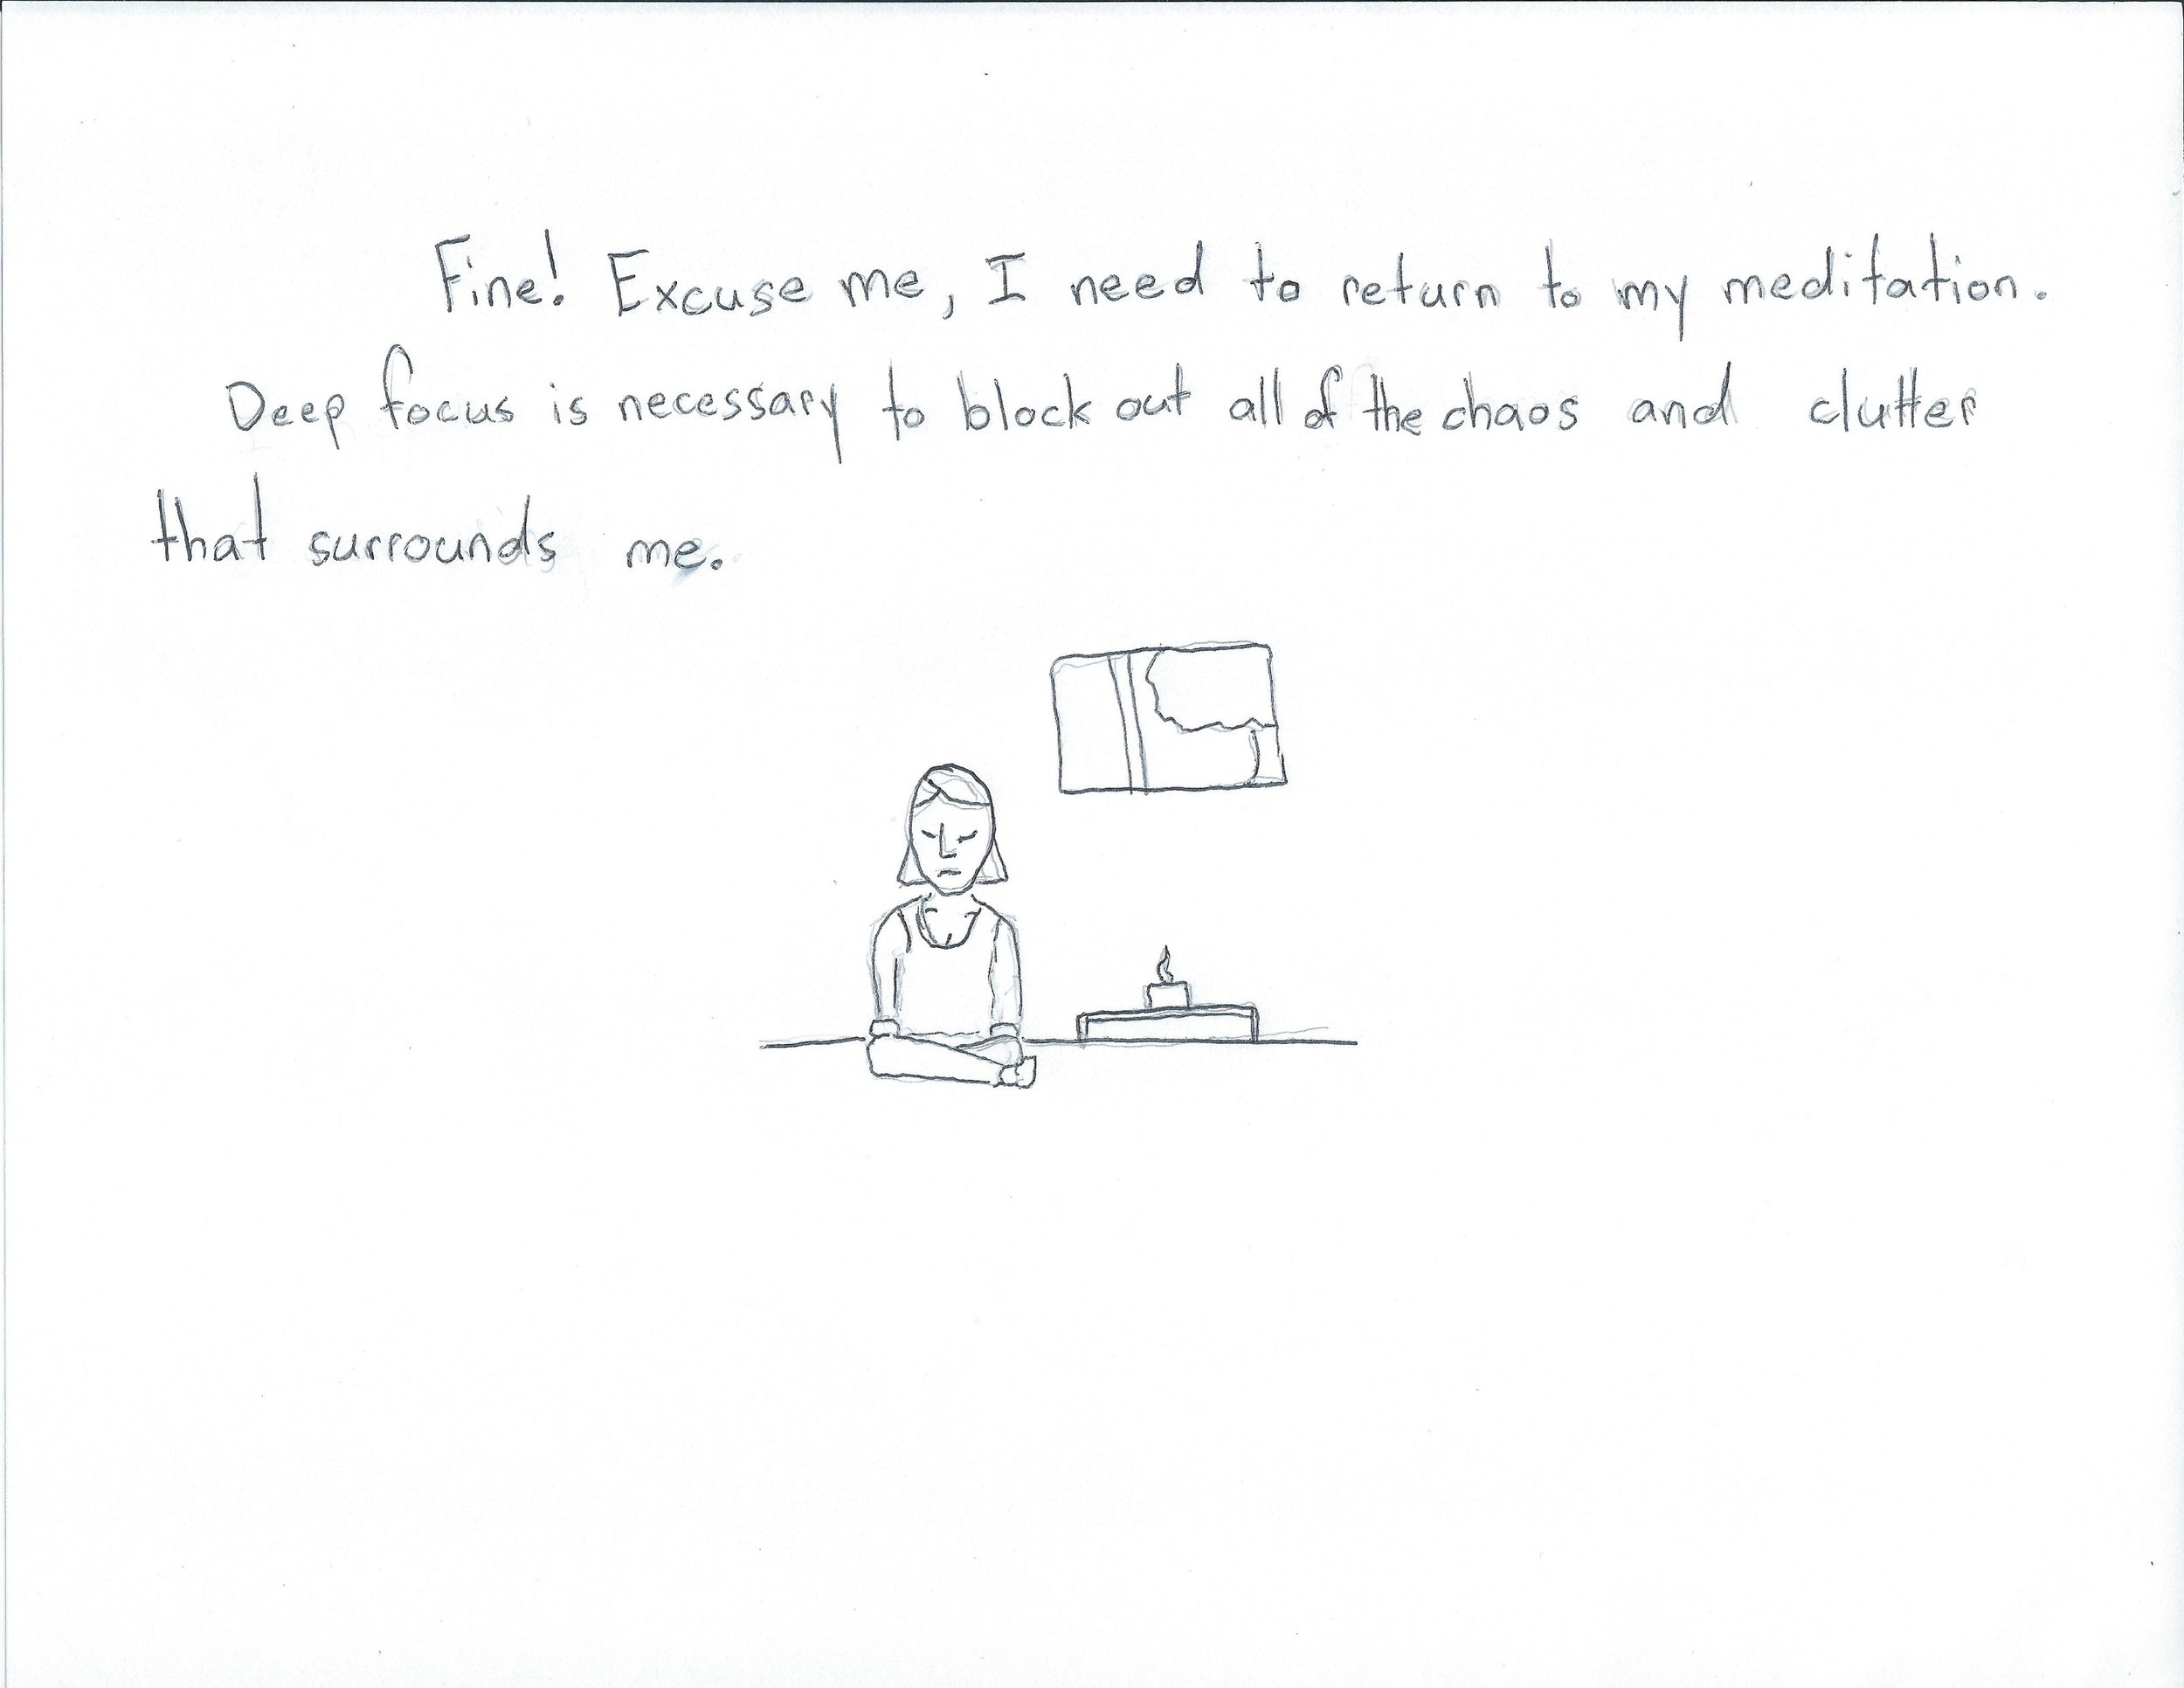 Fine! Excuse me, I need to return to my meditation.
Deep focus is necessary to block out all of the chaos and clutter
that surrounds me.